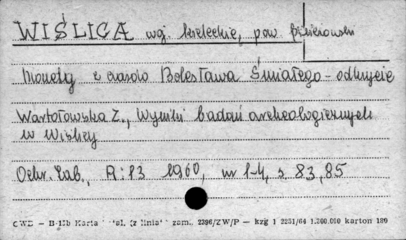 WIŚLICA woj. kieleckie, pow. pińczowski
Monety z czasów Bolesława Śmiałego - odkrycie
Wartołowska Z., Wyniki badań archeologicznych
w Wiślicy
Ochr. Zab., R: 13 1960, nr 1-4, s. 83, 85
CWD — B-15b Karta kzg 1 2251/64 1.200.000 karton 180